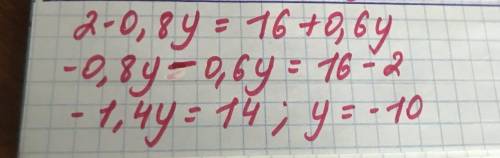 2-0,8y = 16+0,6y
-0,8y - 0,6y = 16-2
-1,4y = 14 ; y = -10